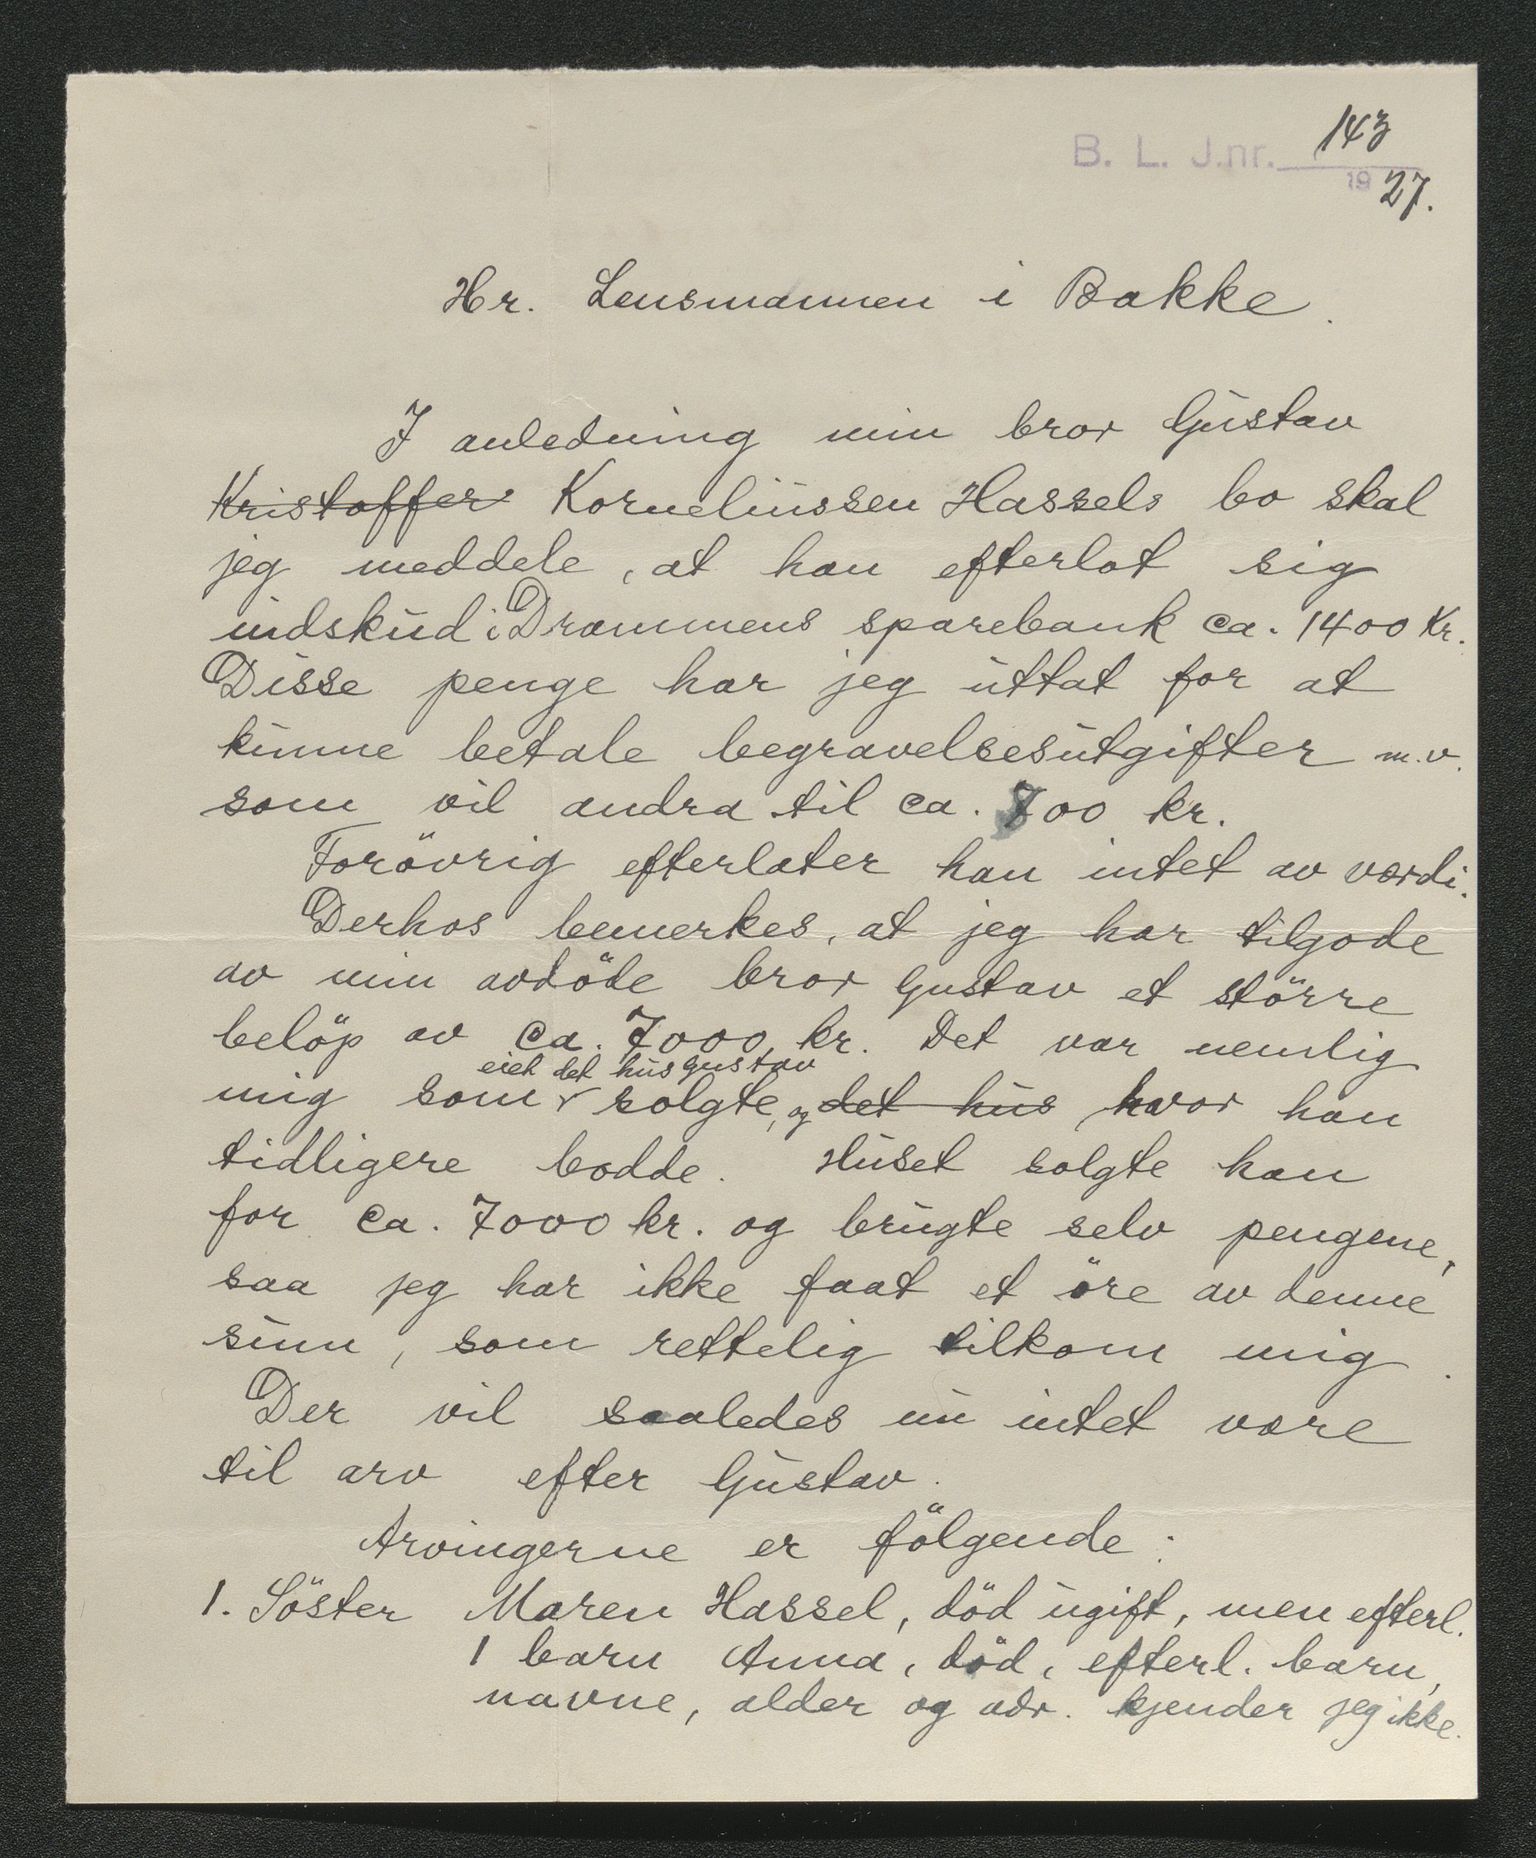 B. L. J.nr. 143
19 27.
Hr. Lensmannen i Bakke.
I anledning min bror Gustav
Kristoffer Korneliussen Hassels bo skal
jeg meddele, at han efterlot sig
indskud i Drammens sparebank ca. 1400 Kr.
Disse penge har jeg uttat for at
kunne betale begravelsesutgifter m.v.
som vil andra til ca. 800 kr.
Forövrig efterlater han intet av værdi.
Derhos bemerkes, at jeg har tilgode
av min avdöde bror Gustav et större
belöp av ca. 7000 kr. Det var nemlig
eiet det hus Gustav
mig som solgte, og det hus hvor han
tidligere bodde. Huset solgte han
for ca. 7000 kr. og brugte selv pengene,
saa jeg har ikke faat et öre av denne
sum, som rettelig tilkom mig.
Der vil saaledes nu intet være
til arv efter Gustav.
Arvingerne er fölgende:
1. Söster Maren Hassel, död ugift, men efterl.
1 barn Anna, död, efterl. barn,
navne, alder og adr. kjender jeg ikke.